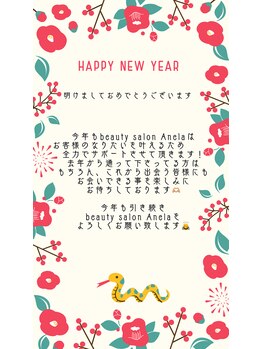 HAPPY NEW YEAR
明けましておめでとうございます
今年もbeauty salon Anelaは
お客様のなりたいを叶えるため
全力でサポートさせて頂きます！
去年から通って下さってる方は
もちろん、これから出会う皆様にも
お会いできる事を楽しみに
お待ちしております🫶🏻
今年も引き続き
beauty salon Anelaを
よろしくお願い致します🙇